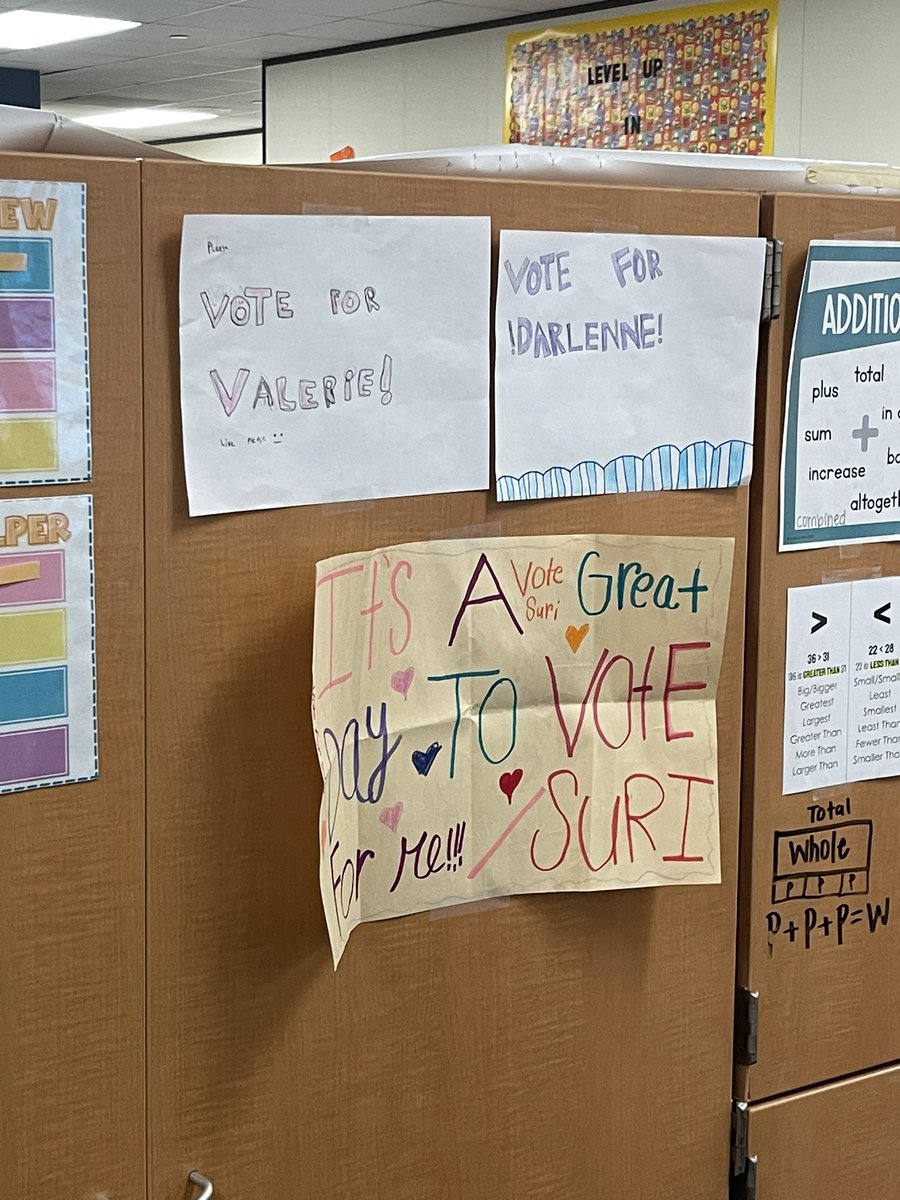 LEVEL UP
IN
EW
LPER
Please
VOTE FOR
VALERIE!
Like please :)
VOTE FOR
!DARLENNE!
It's A Vote Suri Great
Day To VOtE
For Me!!! / SURI
ADDITIO
plus total
in
sum +
increase
altogeth
combined
>
36 > 31
36 is GREATER THAN 31
Big/Bigger
Greatest
Largest
Greater Than
More Than
Larger Than
<
22 < 28
22 is LESS THAN
Small/Small
Least
Smallest
Least Than
Fewer Than
Smaller Tha
Total
Whole
P P P
P+P+P=W